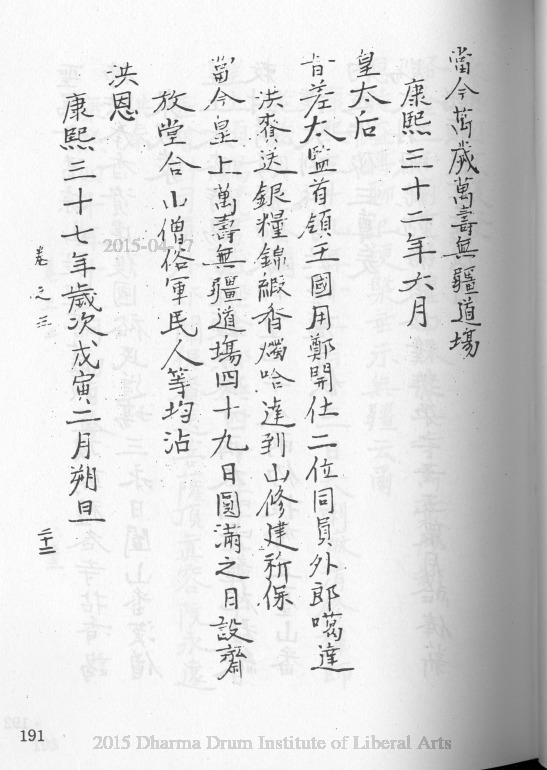 當今萬歲萬壽無疆道場
康熙三十二年六月
皇太后
旨差太監首領王國用鄭開仕二位同員外郎噶達
洪賫送銀糧錦緞香燭哈達到山修建祈保
當今皇上萬壽無疆道場四十九日圓滿之日設齋
放堂合山僧俗軍民人等均沾
洪恩
康熙三十七年歲次戊寅二月朔旦
卷之三
二十二
191
2015-04-17
2015 Dharma Drum Institute of Liberal Arts